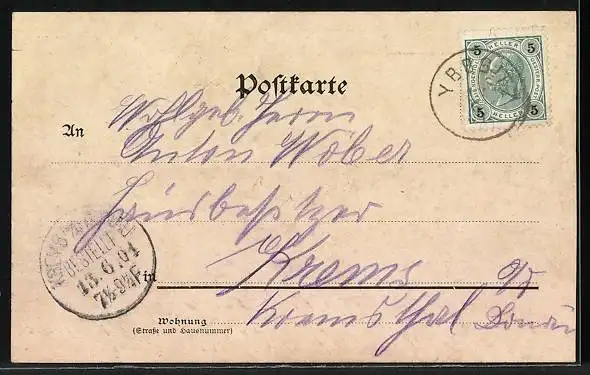 Postkarte
5 HELLER 5
YBBS
5 HELLER 5
An Wohlgeb. Herrn
Anton Wöber
Hausbesitzer
KREMS
BESTELLT
13.6.01
7½-9½F
in Krems a/D
Wohnung Kremsthal Donau
(Straße und Hausnummer)